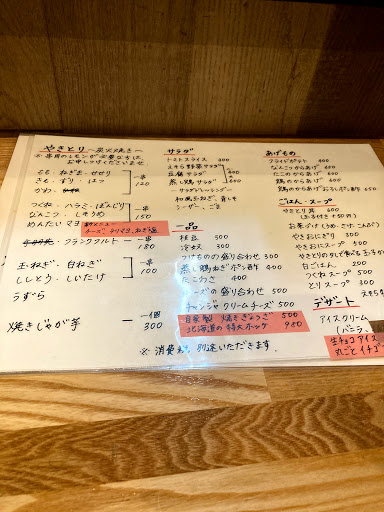 やきとり 〜炭火焼き〜
もも・ねぎま・せせり
きも・ずり・はつ
かわ・
一串
120
つくね・ハラミ・ぼんじり
なんこつ・しそうめ
めんたいマヨ
一串
150
新メニュー
チーズ
フランクフルト
一串
180
玉ねぎ・白ねぎ
ししとう・しいたけ
うずら
一串
100
焼きじゃが芋
一個
300
サラダ
トマトスライス 300
豆腐サラダ
蒸し鶏サラダ
〜サラダドレッシング〜
和風玉ねぎ、青じそ
シーザー、ごま
一品
枝豆 300
冷奴 300
つけものの盛り合わせ 300
蒸し鶏ねぎポン酢 400
たこわさ 400
チーズの盛り合わせ 500
チャンジャクリームチーズ 500
自家製 焼きぎょうざ 500
北海道の特大ホッケ 980
※ 消費税 別途いただきます。
あげもの
フライドポテト 400
なんこつからあげ 400
たこのからあげ 400
鶏のからあげ
鶏のからあげおろしポン酢 450
ごはん・スープ
やきとり丼 600
お茶づけ（うめ、さけ、こんぶ）
やきおにぎり 300
やきおにスープ 500
白ごはん 200
つくねスープ 350
とりスープ 300
デザート
アイスクリーム
（バニラ、
生チョコアイス
丸ごとイチゴ